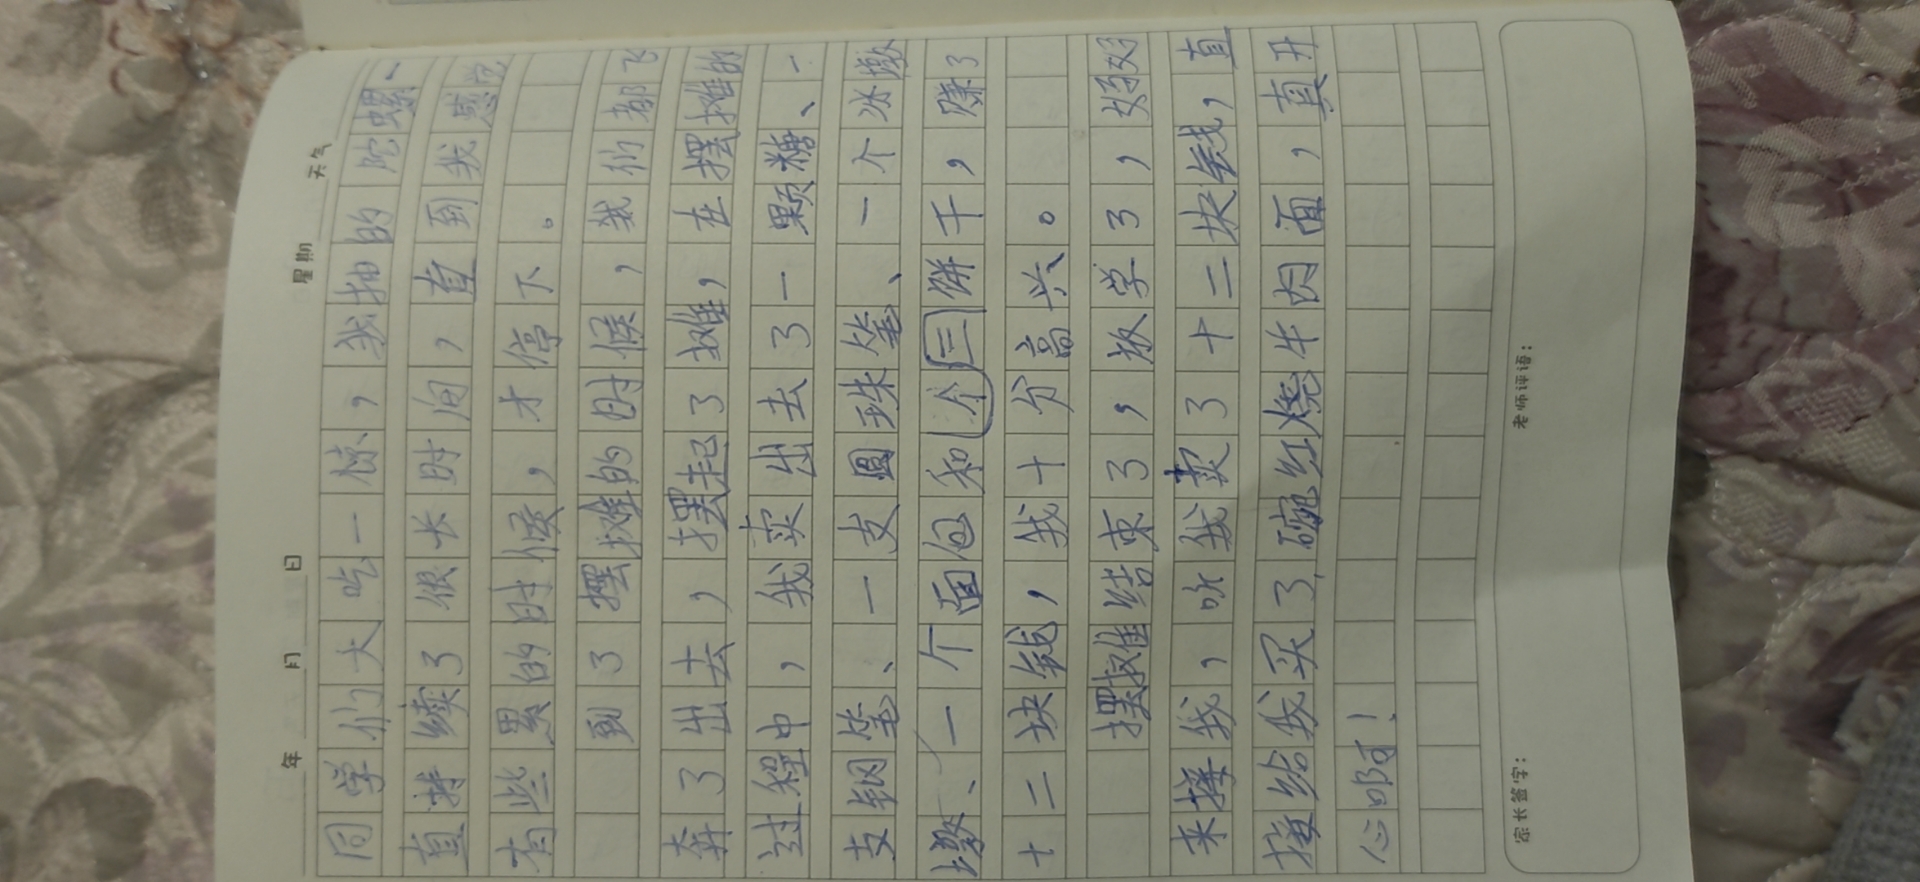 年 月 日 星期 天气
同学们大吃一惊，我抽的陀螺一
直持续了很长时间，直到我感觉
有些累的时候，才停下。
到了摆摊的时候，我们都飞
奔了出去，摆起了摊，在摆摊的
过程中，我卖出去了一颗糖、一
支钢笔、一支圆珠笔、一个冰墩
墩、一个面包和个三饼干，赚了
十二块钱，我十分高兴。
摆摊结束了，放学了，
来接我，听我卖了十二块钱，直
接给我买了碗红烧牛肉面，真开
心啊！
家长签字： 老师评语：